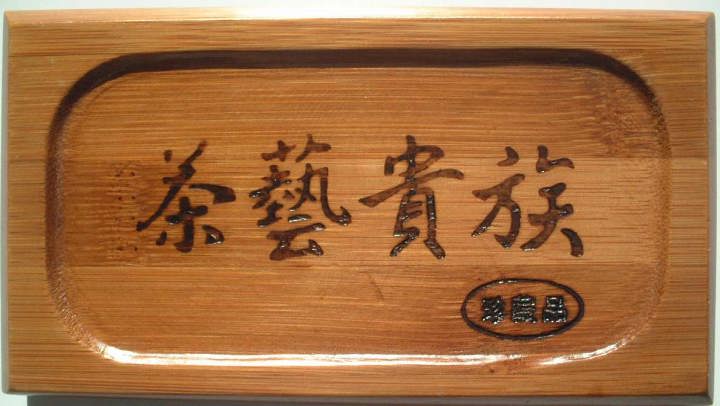 茶藝貴族
珍藏品